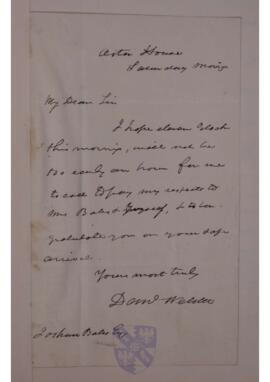 Astor House
Saturday Morng
My Dear Sir
I hope eleven Oclock
this morning, will not be
too early an hour for me
to call & pay my respects to
Mrs. Bates & yourself, & to con
gratulate you on your safe
arrival.
Yours most truly
Danl Webster
Joshua Bates Esq